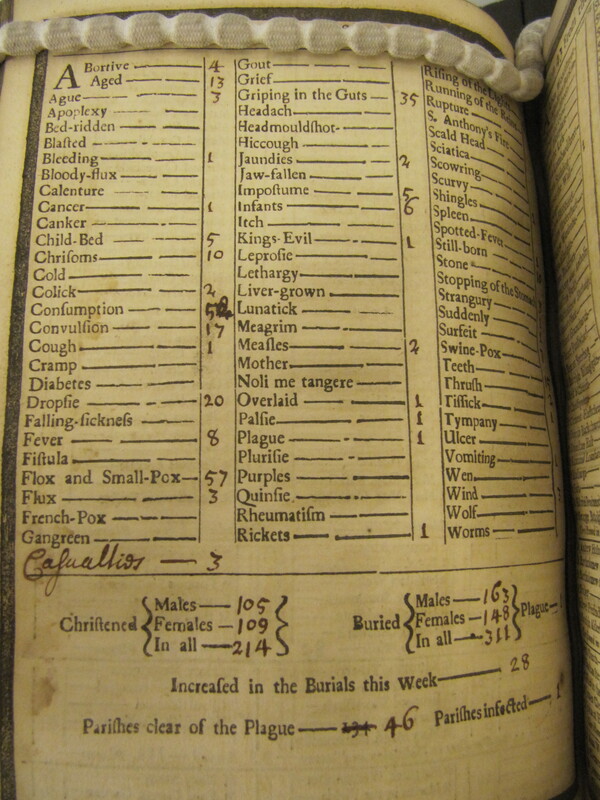 Abortive 4
Aged 13
Ague 3
Apoplexy
Bed-ridden
Blaſted
Bleeding 1
Bloody-flux
Calenture
Cancer 1
Canker
Child-Bed 5
Chriſoms 10
Cold
Colick 2
Conſumption
Convulſion 17
Cough 1
Cramp
Diabetes
Dropſie 20
Falling-ſickneſs
Fever 8
Fiſtula
Flox and Small-Pox 57
Flux 3
French-Pox
Gangreen
Caſualties 3
Gout
Grief
Griping in the Guts 35
Headach
Headmouldſhot
Hiccough
Jaundies 2
Jaw-fallen
Impoſtume 5
Infants 6
Itch
Kings-Evil 1
Leproſie
Lethargy
Liver-grown
Lunatick
Meagrim
Meaſles 2
Mother
Noli me tangere
Overlaid 1
Palſie 1
Plague 1
Pluriſie
Purples
Quinſie
Rheumatiſm
Rickets 1
Riſing of the
Running of the
Rupture
S. Anthony's Fire
Scald Head
Sciatica
Scowring
Scurvy
Shingles
Spleen
Spotted-Fever
Still-born
Stone
Stopping of the
Strangury
Suddenly
Surfeit
Swine-Pox
Teeth
Thruſh
Tiſſick
Tympany
Ulcer
Vomiting
Wen
Wind
Wolf
Worms
Chriſtened { Males — 105 Females — 109 In all — 214 }
Buried { Males — 163 Females — 148 In all — 311 } Plague —
Increaſed in the Burials this Week — 28
Pariſhes clear of the Plague — 134 46 Pariſhes infected —